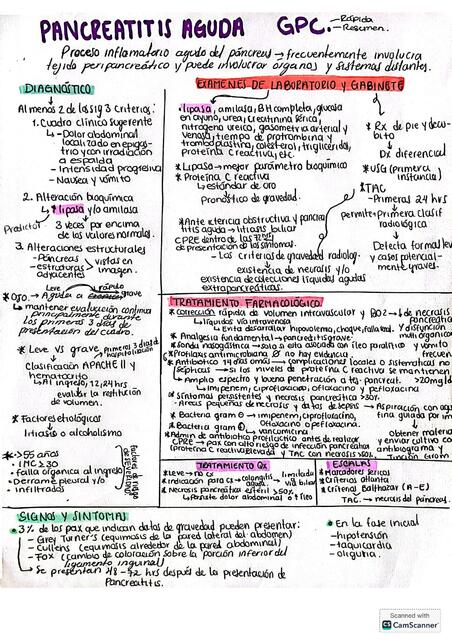 PANCREATITIS AGUDA GPC. -Rápida
-Resumen.
Proceso inflamatorio agudo del páncreas → frecuentemente involucra
tejido peripancreático y puede involucrar órganos y sistemas distantes.
DIAGNÓSTICO
Al menos 2 de las sig 3 criterios:
1. Cuadro clínico sugerente
↳ Dolor abdominal
localizado en epigas-
trio y con irradiación
a espalda
- Intensidad progresiva
- Nausea y vómito
2. Alteración bioquímica
↳ * lipasa y/o amilasa
Predictor
3 veces por encima
de los valores normales.
3. Alteraciones estructurales
- Páncreas
- estructuras adyacentes
vistas en imagen.
Leve → rápido
* Ojo. → Aguda a grave
↳ mantener evaluación continua
principalmente durante
los primeros 3 días de
presentación del cuadro.
* Leve vs grave → primeros 3 días de
hospitalización
Clasificación APACHE II y
hematocrito
↳ Al ingreso, 12, 24 hrs
evaluar la restitución
de volumen.
* Factores etiológicos
litiasis o alcoholismo
* >55 años
- IMC >30
- Falla orgánica al ingreso
- Derrame pleural y/o
infiltrados
factores de riesgo
EXÁMENES DE LABORATORIO Y GABINETE
• lipasa, amilasa, BH completa, glucosa
en ayuno, urea, creatinina sérica,
nitrógeno ureico, gasometría arterial y
venosa, tiempo de protrombina y
tromboplastina, colesterol, triglicéridos,
proteína C reactiva, etc.
* Lipasa → mejor parámetro bioquímico
* Proteína C reactiva
↳ estándar de oro
Pronóstico de gravedad.
* Ante ictericia obstructiva y pancrea
titis aguda → litiasis biliar
CPRE dentro de las 72 hrs
de presentación de los síntomas.
- Las criterios de gravedad radiológ.
existencia de necrosis y/o
existencia de colecciones líquidas agudas
extrapancreáticas.
* Rx de pie y decú-
bito
Dx diferencial
* USG (primera
instancia)
* TAC
- Primeras 24 hrs
permite → Primera clasif
radiológica
Detecta formas leves
y casos potencial-
mente graves.
TRATAMIENTO FARMACOLÓGICO
* Corrección rápida de volumen intravascular y BO2
↳ líquidos vía intravenosa
↳ Evita desarrollar hipovolemia, choque, falla renal.
↓ de necrosis
pancreática
y disfunción
multiorgánica
* Analgesia fundamental → pancreatitis grave.
* Sonda nasogástrica → solo a en asociada con íleo paralítico y vómito
frecuen
* Profilaxis antimicrobiana ∅ no hay evidencia
* Tratamiento 14 días → complicaciones locales o sistemáticas no
sépticas → si los niveles de proteína C reactiva se mantienen
>20mg/dl
↳ Amplio espectro y buena penetración a tej. pancreat.
↳ Imipenem, ciprofloxacino, ofloxacino y pefloxacina
* Síntomas persistentes y necrosis pancreática >30%.
Áreas pequeñas de necrosis y datos de sepsis → Aspiración con aguja
fina guiada por im
* Bacterias gram ⊖ → imipenem, ciprofloxacino,
ofloxacino o pefloxacina.
* Bacteria gram ⊕
↳ vancomicina
* Admin de antibiótico profiláctico antes de realizar
CPRE → pax con alto riesgo de infección pancreática
(proteína C reactiva elevada y TAC con necrosis >50%.
Obtener material
y enviar cultivo con
antibiograma y
tinción Gram
TRATAMIENTO QX
* Leve → no cx
* Indicación para cx → colangitis aguda. limitada vía biliar
* Necrosis pancreática estéril >50%
↳ Persiste dolor abdominal
ESCALAS
* Marcadores séricos
* Criterios Atlanta
* Criterios Balthazar (A-E)
TAC. → necrosis del páncreas.
SIGNOS Y SÍNTOMAS
• 3% de los pax que indican datos de gravedad pueden presentar:
- Grey Turner's (equimosis de la pared lateral del abdomen)
- Cullens (equimosis alrededor de la pared abdominal)
- Fox (cambio de coloración sobre la porción inferior del
ligamento inguinal)
↳ Se presentan 48 - 72 hrs después de la presentación de
Pancreatitis.
• En la fase inicial
- hipotensión
- taquicardia
- oliguria.
Scanned with
CS CamScanner